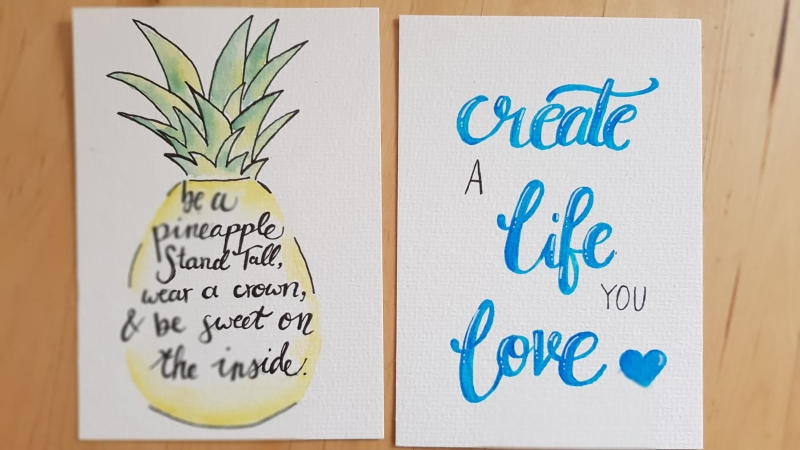 be a
pineapple
Stand Tall,
wear a crown,
& be sweet on
the inside.
create
A
life
YOU
love